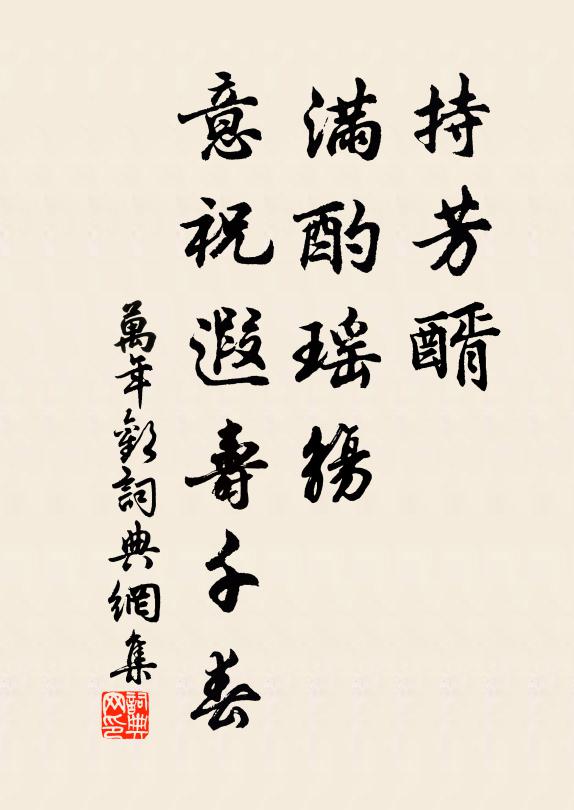 持芳醑
滿酌瑤觴
意祝遐壽千春
萬年歡詞典網集
詞典网印